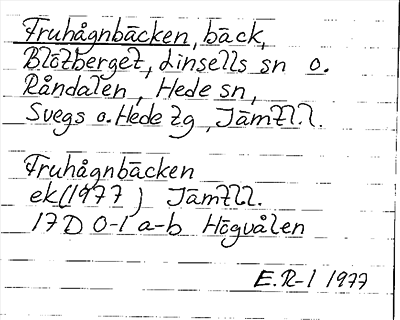 Fruhågnbäcken, bäck,
Blötberget, Linsells sn o.
Råndalen, Hede sn,
Svegs o. Hede tg, Jämtl.l.
Fruhågnbäcken
ek(1977) Jämtll.
17D 0-1 a-b Högvålen
E.R-l 1977